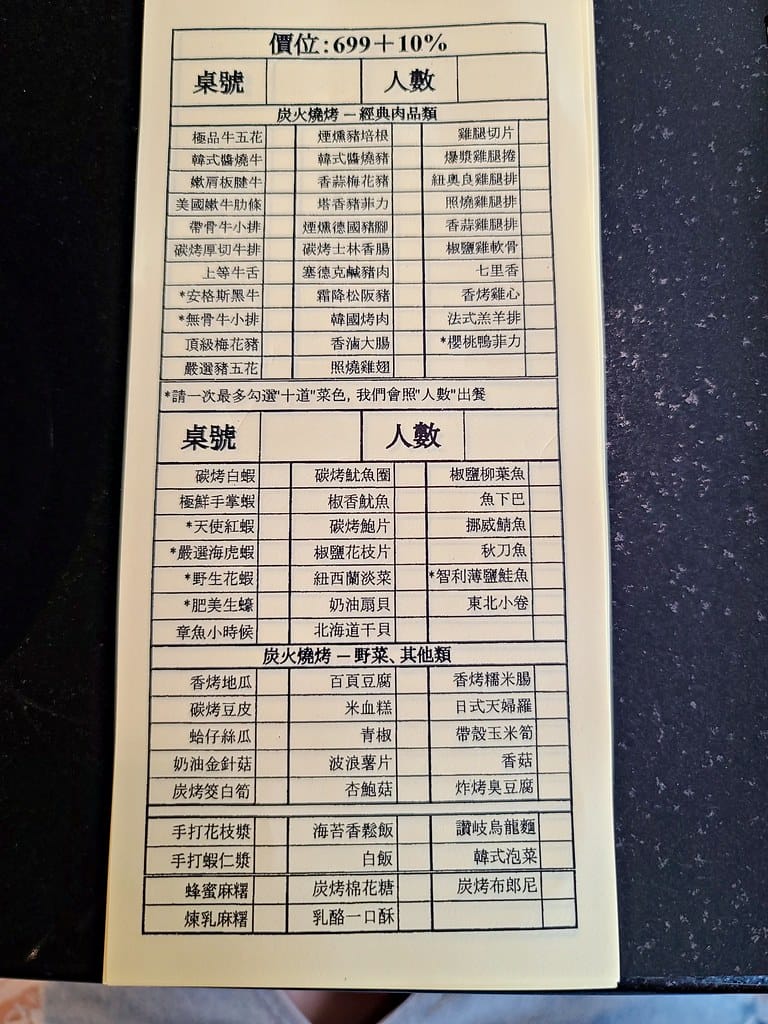 價位:699+10%
桌號 人數
炭火燒烤 – 經典肉品類
極品牛五花 煙燻豬培根 雞腿切片
韓式醬燒牛 韓式醬燒豬 爆漿雞腿捲
嫩肩板腱牛 香蒜梅花豬 紐奧良雞腿排
美國嫩牛肋條 塔香豬菲力 照燒雞腿排
帶骨牛小排 煙燻德國豬腳 香蒜雞腿排
碳烤厚切牛排 碳烤士林香腸 椒鹽雞軟骨
上等牛舌 塞德克鹹豬肉 七里香
*安格斯黑牛 霜降松阪豬 香烤雞心
*無骨牛小排 韓國烤肉 法式羔羊排
頂級梅花豬 香滷大腸 *櫻桃鴨菲力
嚴選豬五花 照燒雞翅
*請一次最多勾選"十道"菜色, 我們會照"人數"出餐
桌號 人數
碳烤白蝦 碳烤魷魚圈 椒鹽柳葉魚
極鮮手掌蝦 椒香魷魚 魚下巴
*天使紅蝦 碳烤鮑片 挪威鯖魚
*嚴選海虎蝦 椒鹽花枝片 秋刀魚
*野生花蝦 紐西蘭淡菜 *智利薄鹽鮭魚
*肥美生蠔 奶油扇貝 東北小卷
章魚小時候 北海道干貝
炭火燒烤 – 野菜、其他類
香烤地瓜 百頁豆腐 香烤糯米腸
碳烤豆皮 米血糕 日式天婦羅
蛤仔絲瓜 青椒 帶殼玉米筍
奶油金針菇 波浪薯片 香菇
炭烤筊白筍 杏鮑菇 炸烤臭豆腐
手打花枝漿 海苔香鬆飯 讚岐烏龍麵
手打蝦仁漿 白飯 韓式泡菜
蜂蜜麻糬 炭烤棉花糖 炭烤布郎尼
煉乳麻糬 乳酪一口酥